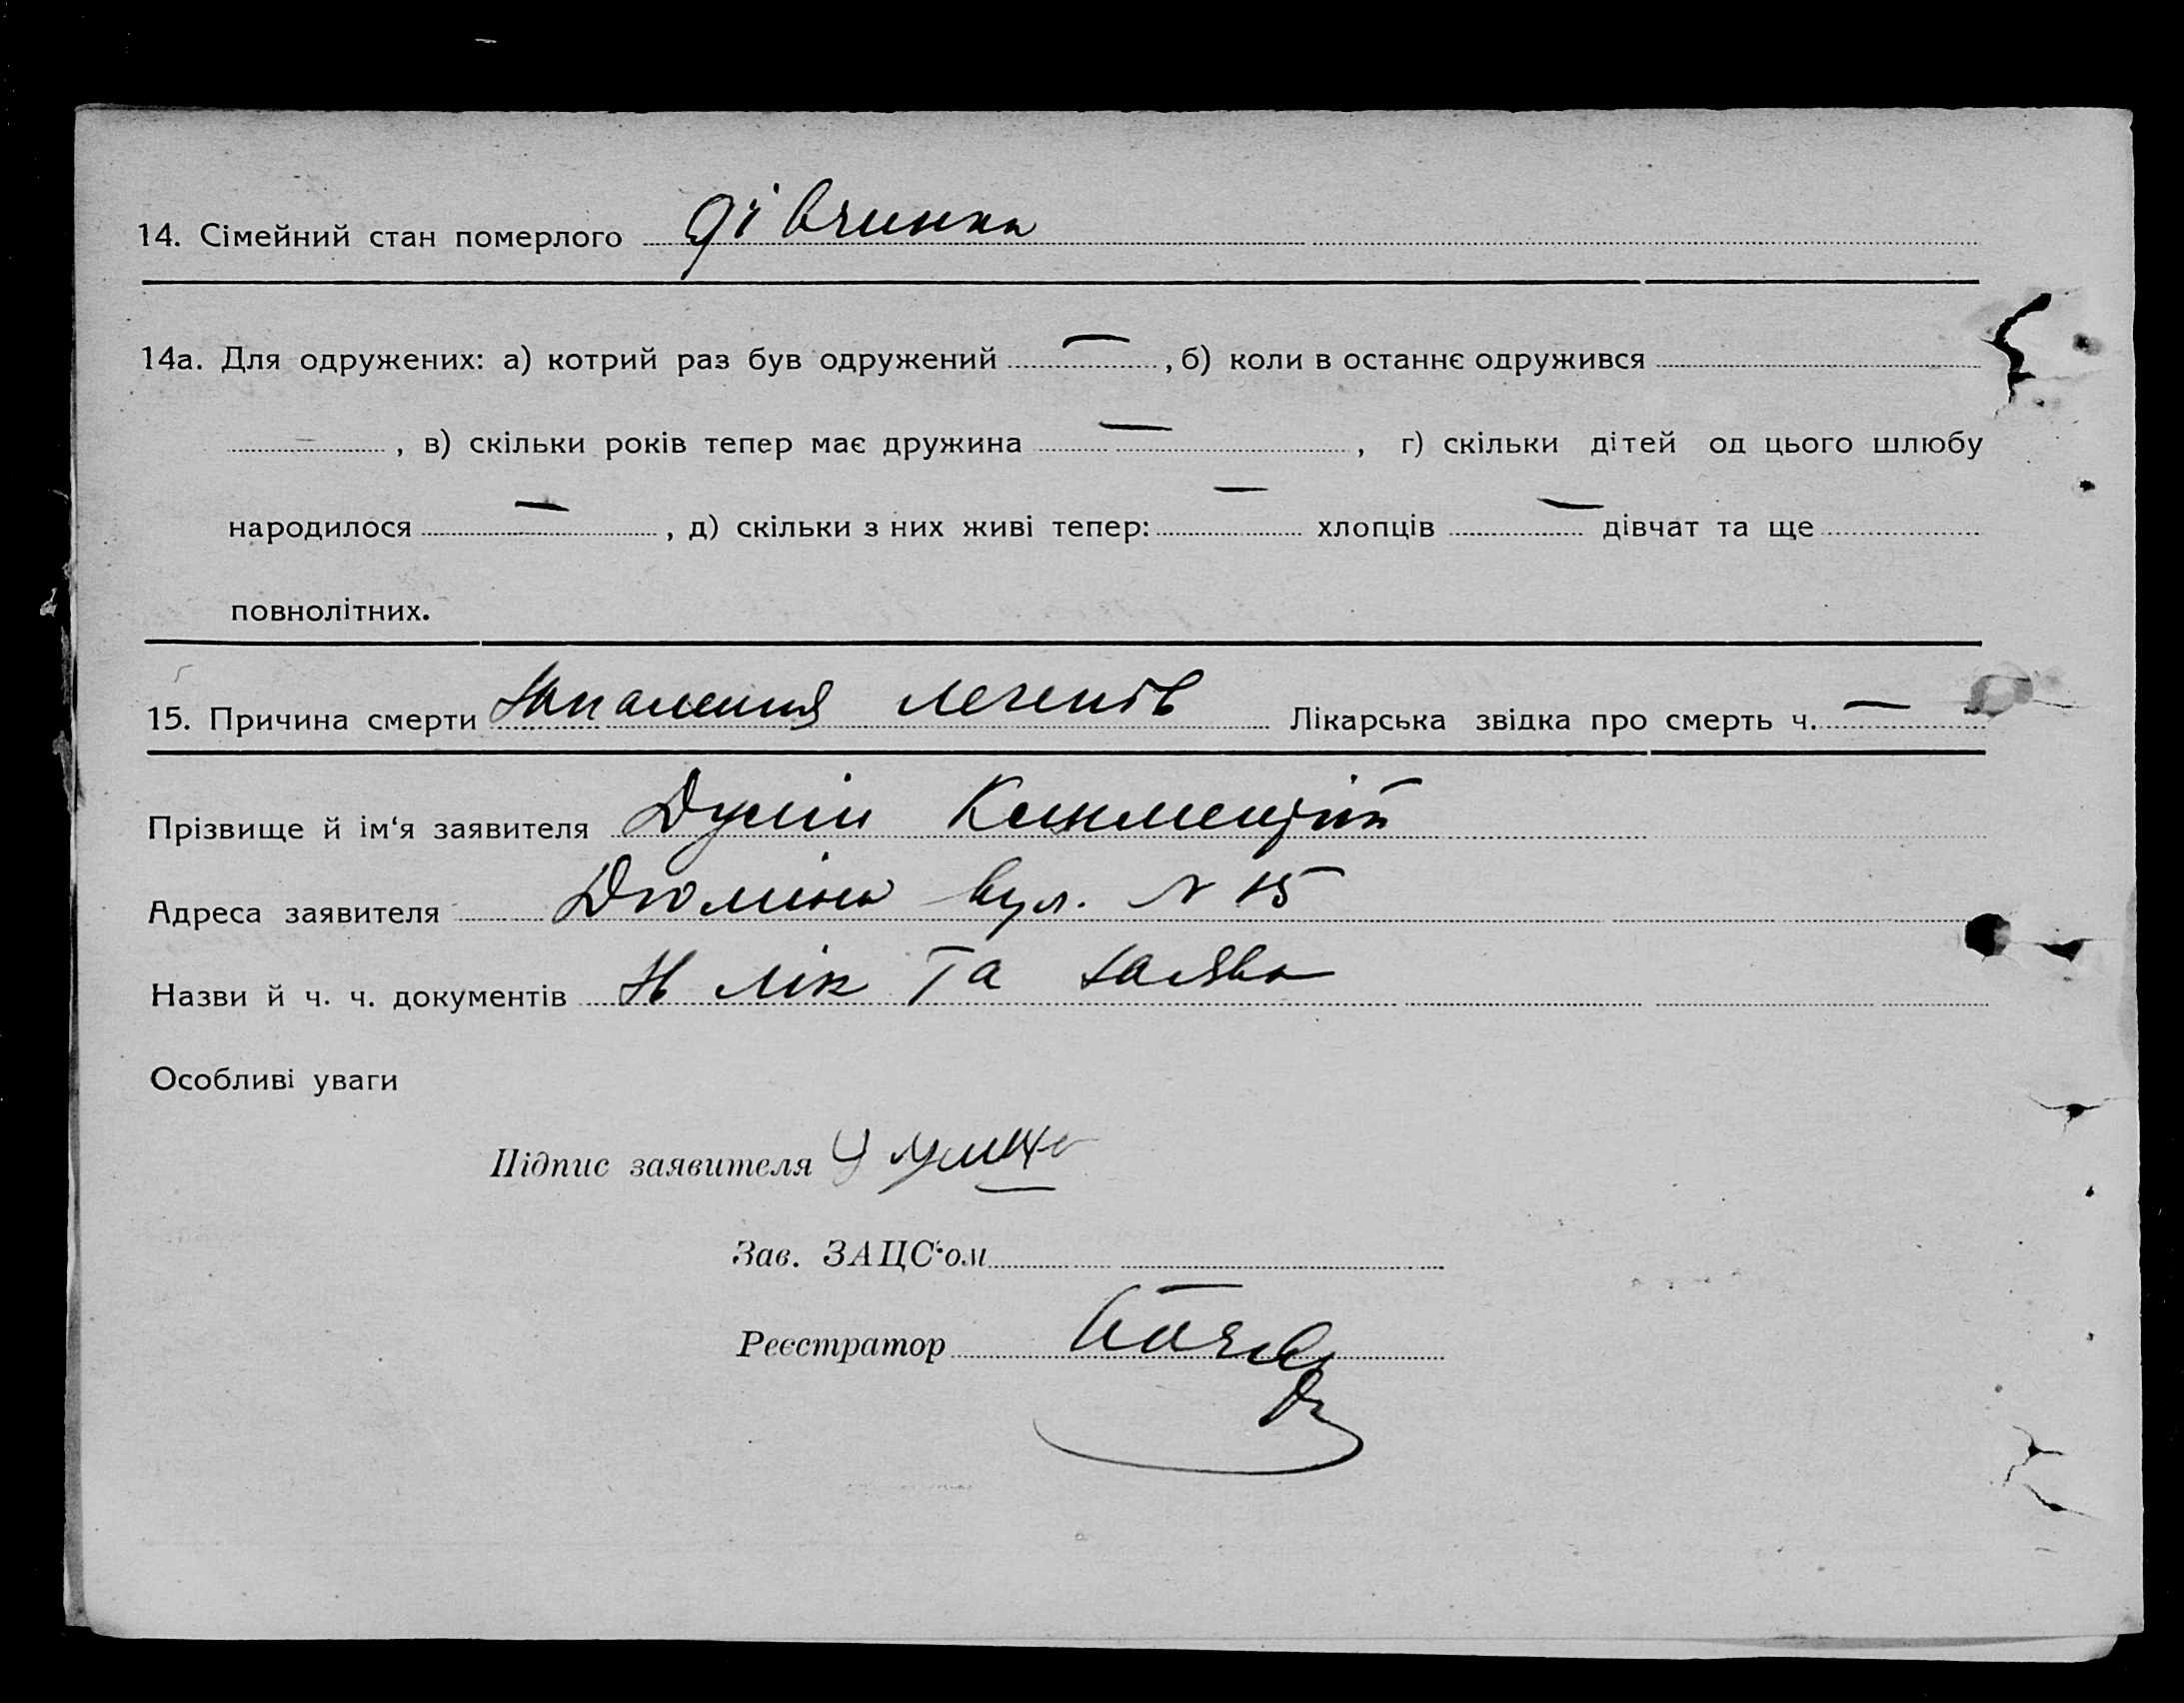 14. Сімейний стан померлого дівчинка
14а. Для одружених: а) котрий раз був одружений — , б) коли в останнє одружився
, в) скільки років тепер має дружина — , г) скільки дітей од цього шлюбу
народилося — , д) скільки з них живі тепер: — хлопців — дівчат та ще
повнолітних.
15. Причина смерти запалення легенів Лікарська звідка про смерть ч. —
Прізвище й ім'я заявителя
Адреса заявителя вул. N 15
Назви й ч. ч. документів лік та заява
Особливі уваги
Підпис заявителя
Зав. ЗАЦС'ом
Реєстратор